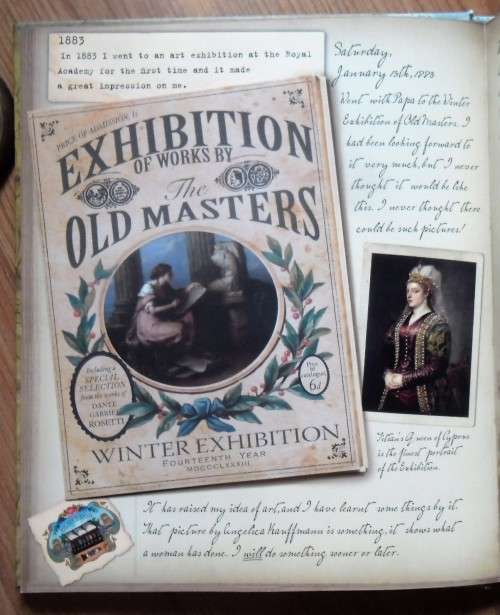 1883
In 1883 I went to an art exhibition at the Royal
Academy for the first time and it made
a great impression on me.
Saturday,
January 13th, 1883
Went with Papa to the Winter
Exhibition of Old Masters. I
had been looking forward to
it very much, but I never
thought it would be like
this. I never thought there
could be such pictures!
PRICE OF ADMISSION
EXHIBITION
OF WORKS BY
The
OLD MASTERS
Including a
SPECIAL
SELECTION
from the works of
DANTE
GABRIEL
ROSETTI
Price
of
catalogue
6d
WINTER EXHIBITION
FOURTEENTH YEAR
MDCCCLXXXIII
Titian's Queen of Cyprus
is the finest portrait
of the Exhibition.
It has raised my idea of art, and I have learnt some things by it.
That picture by Angelica Kauffmann is something, it shows what
a woman has done. I will do something sooner or later.